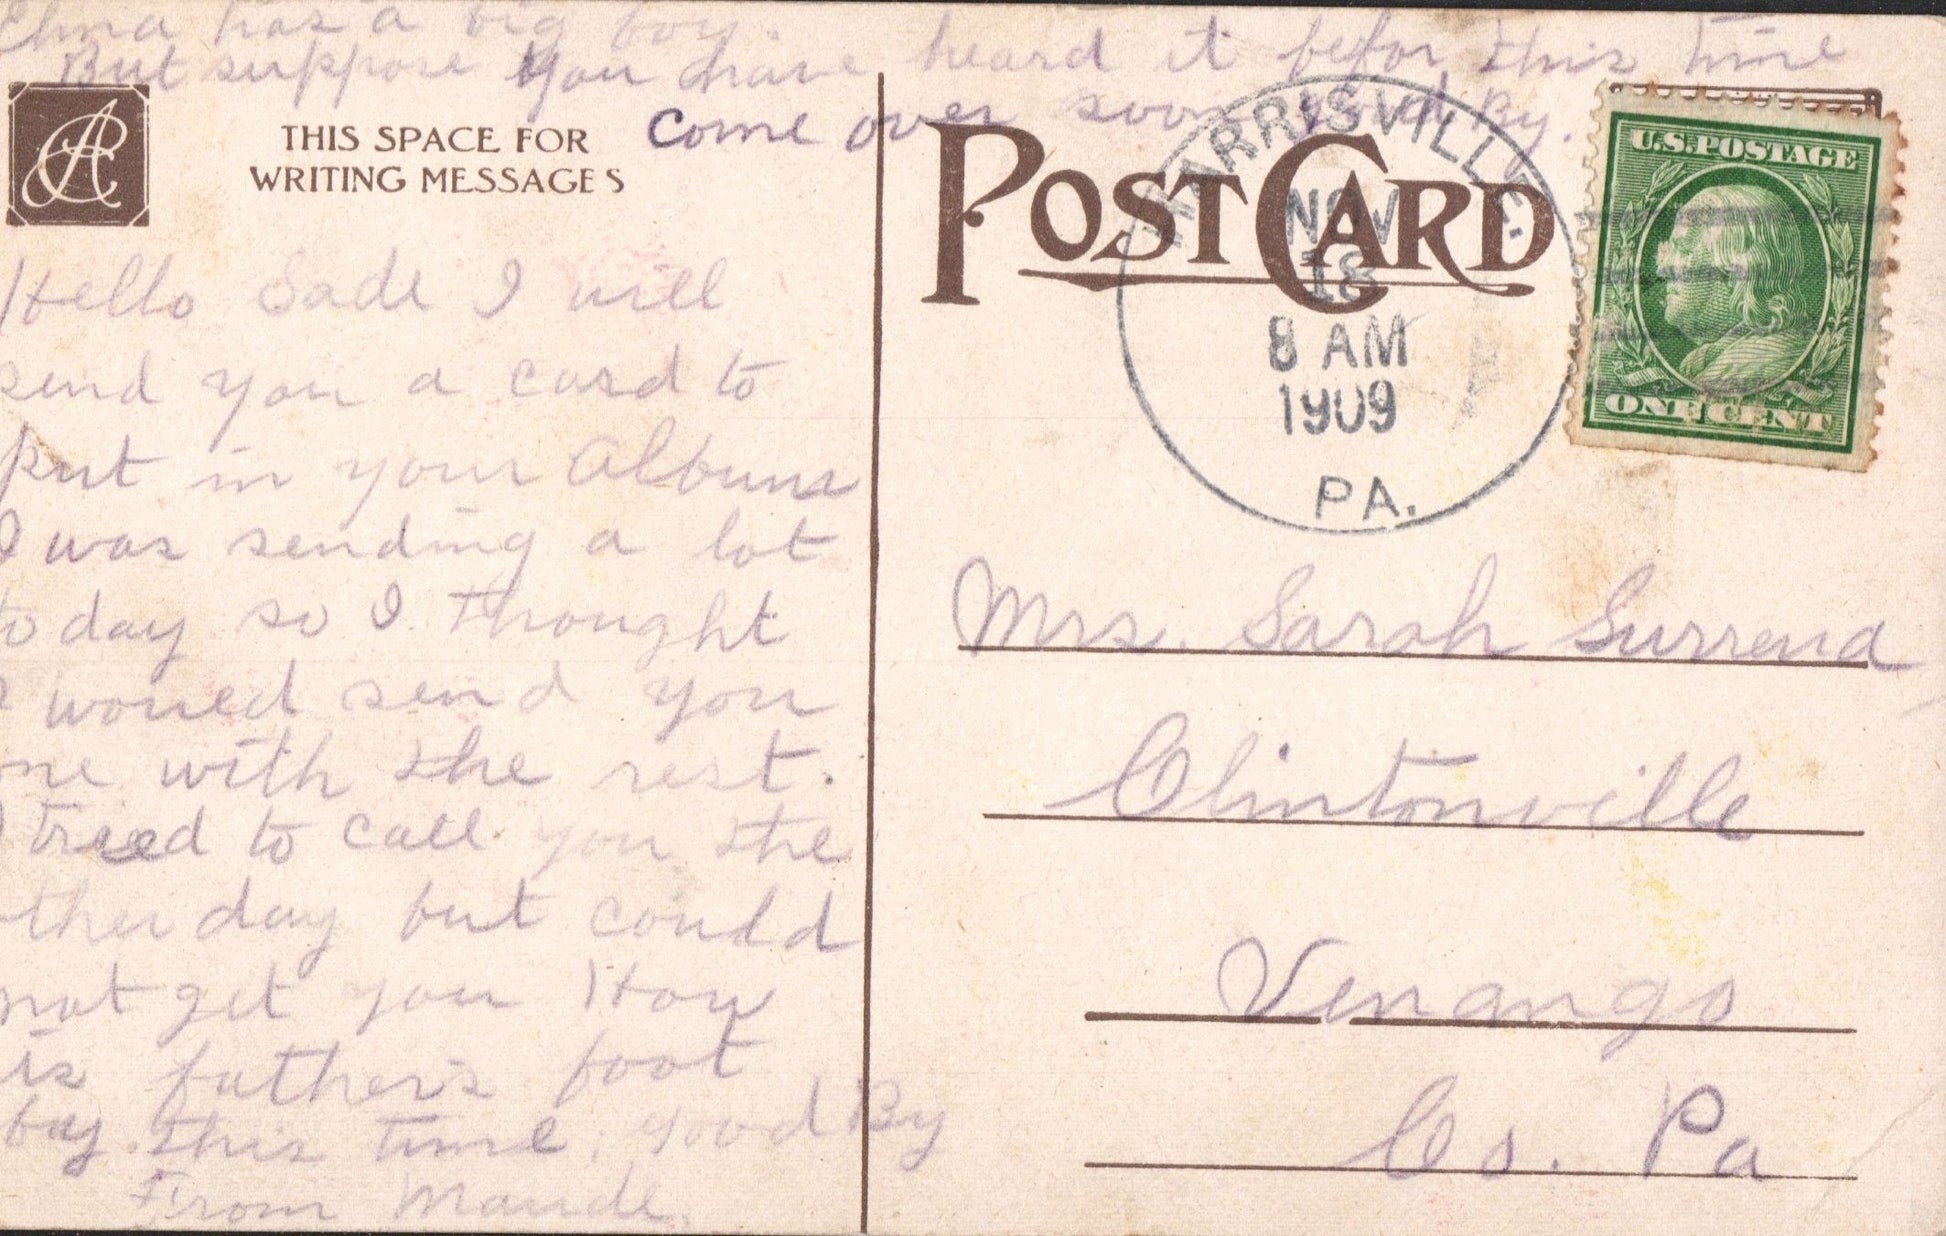 Elma has a big boy.
But suppose you have heard it befor this time
Come over soon, good By.
THIS SPACE FOR
WRITING MESSAGES
Hello Sade I will
send you a card to
put in your Albums
I was sending a lot
to day so I thought
I woued send you
one with the rest.
I tried to call you the
other day but could
not get you How
is father's foot
by this time, good By
From Maude.
POST CARD
HARRISVILLE.
NOV
18
8 AM
1909
PA.
U.S. POSTAGE
ONE CENT
Mrs. Sarah Surrena
Clintonville
Venango
Co. Pa